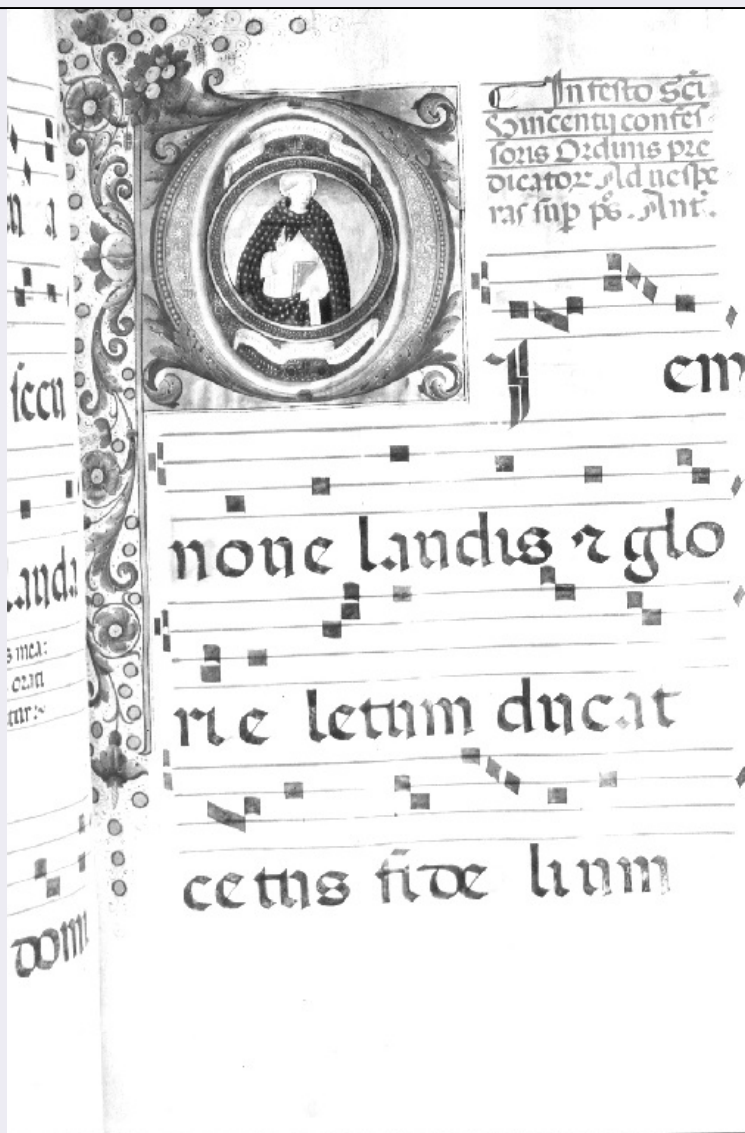 In festo Sci
Vincentij confes
soris Ordinis pre
dicator. Ad uespe
ras sup ps. Ant.
em
noue laudis ⁊ glo
rie letum ducat
cetus fide lium
secu
lauda
s mea:
orati
tur:
domi